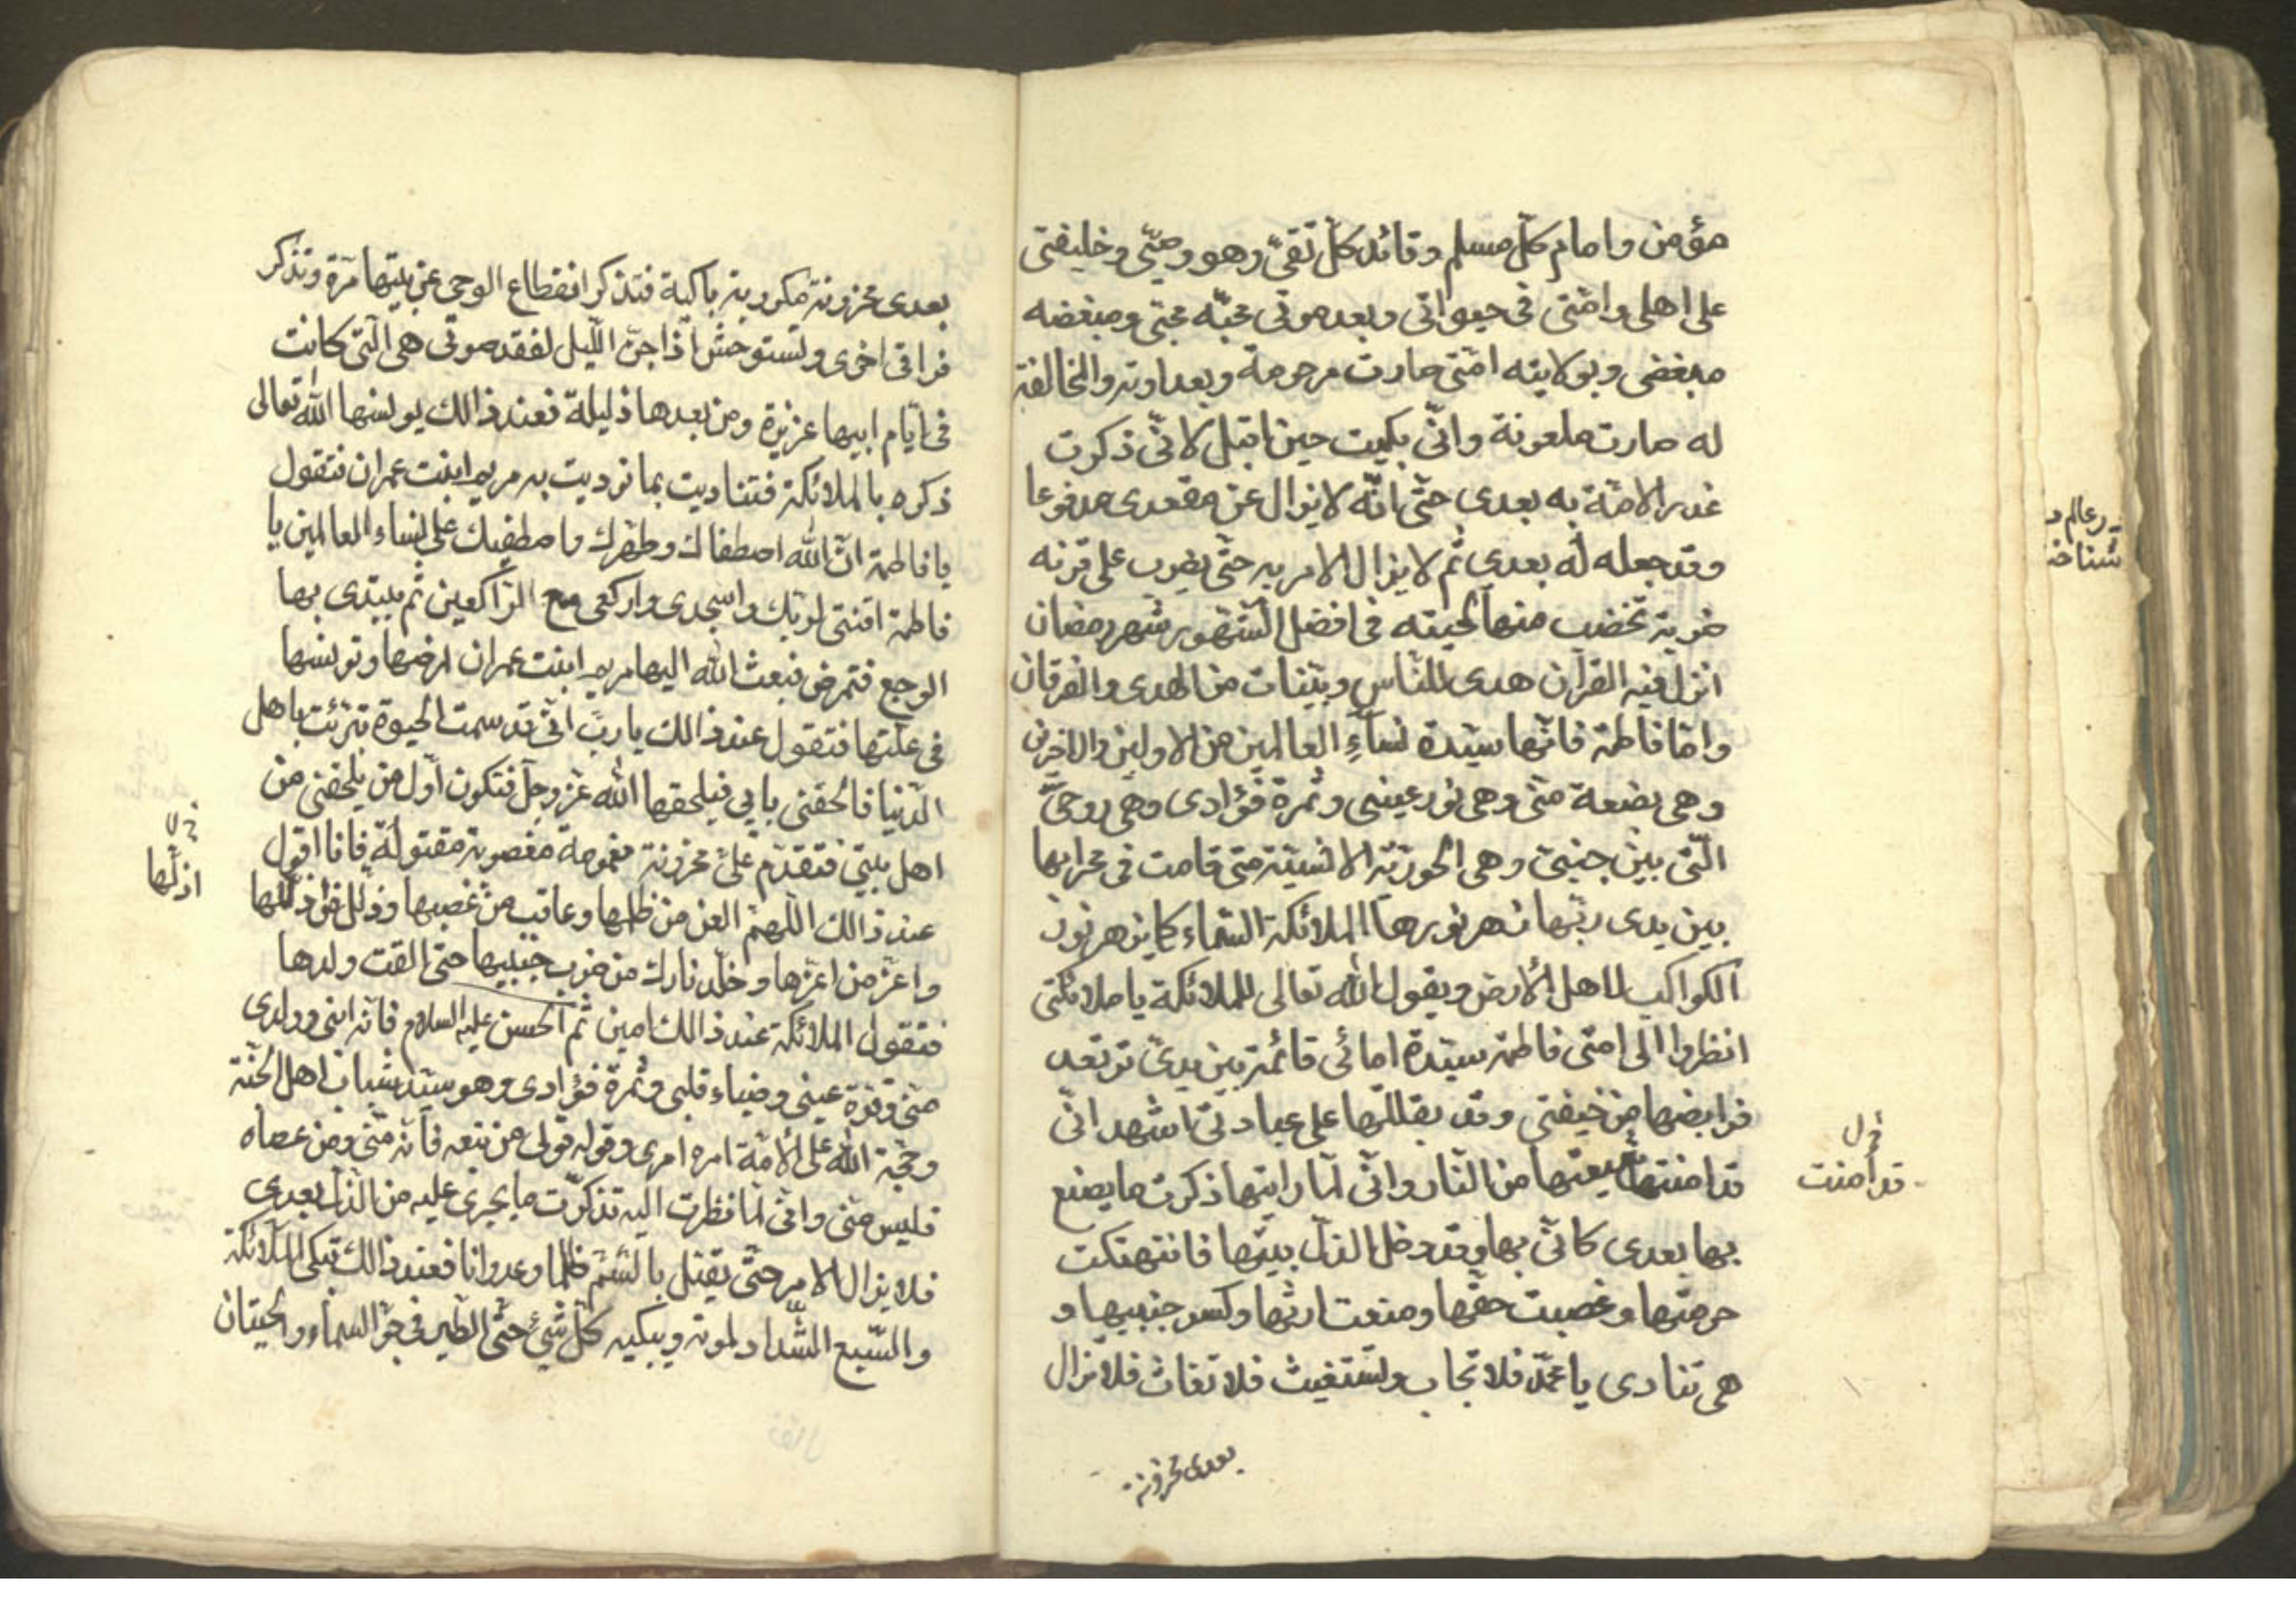 مؤمن وامام كل مسلم وقائد كل تقيّ وهو وصيّي وخليفتي
على اهلي وامّتي في حيواتي وبعد موتي محبّه محبّي ومبغضه
مبغضي وبولايته امّتي صارت مرحومة وبعداوته والمخالفة
له صارت ملعونة وانّي بكيت حين اقبل لانّي ذكرت
غدر الامّة به بعدي حتّى انّه لا يزال عن مقعدي مدفوعا
وقد جعله له بعدي ثم لا يزال الامر به حتّى يضرب على قرنه
ضربة تخضب منها لحيته في افضل الشهور شهر رمضان
انزل فيه القرآن هدى للنّاس وبيّنات من الهدى والفرقان
وامّا فاطمة فانّها سيّدة نساءِ العالمين من الاولين والاخرين
وهي بضعة منّي وهي نور عيني وثمرة فؤادي وهي روحيَّ
الّتي بين جنبيّ وهي الحوريّة الانسيّة متى قامت في محرابها
بين يدي ربّها زهر نورها الملائكة السّماء كما يزهر نور
الكواكب لاهل الأرض ويقول الله تعالى للملائكة يا ملائكتي
انظروا الى امتي فاطمة سيّدة امائي قائمة بين يديّ ترتعد
فرايضها من خيفتي وقد بقلبها على عبادتي اشهد انّي
قد امنتها شيعتها من النّار وانّي لمّا رايتها ذكرت ما يصنع
بها بعدي كانّي بها وقد دخل الذلّ بيتها فانتهتكت
حرمتها وغصبت حقّها ومنعت ارثها وكسر جنبيها و
هي تنادي يا محمّد فلا تجاب ولتستغيث فلا تغاث فلا تزال
بعدى محزونة
قد أمنت
رعالم
شناخت
بعدى محزونة مكروبة باكية فتذكر انقطاع الوحي عن بيتها مرّة وتذكر
فراقي اخرى ولتستوحش اذا جنّ اللّيل لفقد صوتي هي الّتي كانت
في ايّام ابيها عزيزة ومن بعدها ذليلة فعند ذالك يولسها الله تعالى
ذكره بالملائكة فتناديت بما نوديت به مريم ابنت عمران فتقول
يا فاطمة انّ الله اصطفاك وطهّرك واصطفيك على نساء العالمين يا
فاطمة اقنتي لربّك واسجدي واركعي مع الرّاكعين ثم يبتدى بها
الوجع فتمرض فبعث الله اليها مريم ابنت عمران تمرضها وتونسها
في علّتها فتقول عند ذالك يا ربّ انّي قد سمت الحيوة تبرّئت باهل
الدّنيا فالحقني بابي فيلحقها الله عزّ وجلّ فتكون اوّل من يلحقني من
اهل بيتي فتقدّم عليّ محزونة مغمومة مغصوبة مقتولة فانا اقول
عند ذالك اللّهمّ العن من ظلمها وعاقب من غصبها وذلل من ذلّلها
واعز من اعزّها وخلّد نارك من ضرب جنبيها حتى القت ولدها
فتقول الملائكة عند ذالك امين ثم الحسن عليه السلام فانّه ابني وولدي
منّي وقرّة عيني وضياء قلبي وثمرة فؤادي وهو سيّد شباب اهل الجنّة
وحجّة الله على الامّة امره امري وقوله قولي من تبعه فانّه منّي ومن عصاه
فليس منّي وانّي لمّا نظرت اليه تذكرّت ما يجرى عليه من الذلّ بعدي
فلا يزال الامر حتّى يقتل بالسّم ظلما وعدوانا فعند ذالك تبكي الملائكة
والسّبع الشّداد لموته ويبكيه كلّ شيئ حتّى الطّير في جوّ السّماء والحيتان
اذلّها